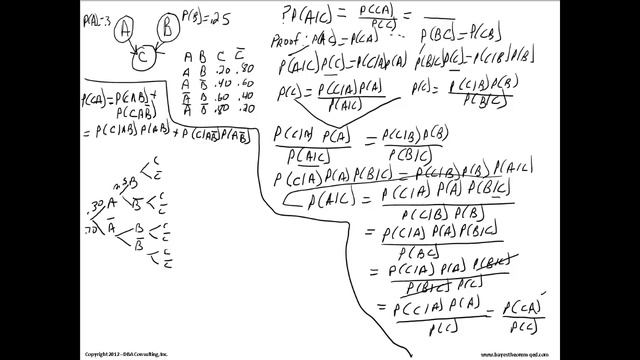 P(A)=.3
A
B
P(B)=.25
C
A B C C̅
A B .20 .80
A B̅ .40 .60
A̅ B .60 .40
A̅ B̅ .80 .20
P(CA)=P(CAB)+
P(CAB̅)
=P(C|AB)P(AB)+P(C|AB̅)P(AB̅)
.30 A
.70 A̅
B
B̅
B
B̅
C
C̅
C
C̅
C
C̅
C
C̅
?P(A|C) = P(CA)/P(C) = ____
Proof: P(AC)=P(CA) ... P(BC)=P(CB)
P(A|C)P(C)=P(C|A)P(A) P(B|C)P(C)=P(C|B)P(B)
P(C)=P(C|A)P(A)/P(A|C) P(C)=P(C|B)P(B)/P(B|C)
P(C|A)P(A)/P(A|C) = P(C|B)P(B)/P(B|C)
P(C|A)P(A)P(B|C)=P(C|B)P(B)P(A|C)
P(A|C) = P(C|A)P(A)P(B|C)/P(C|B)P(B)
= P(C|A)P(A)P(B|C)/P(BC)
= P(C|A)P(A)P(B|C)/P(B|C)P(C)
= P(C|A)P(A)/P(C) = P(CA)/P(C)
Copyright 2012 - DBA Consulting, Inc.